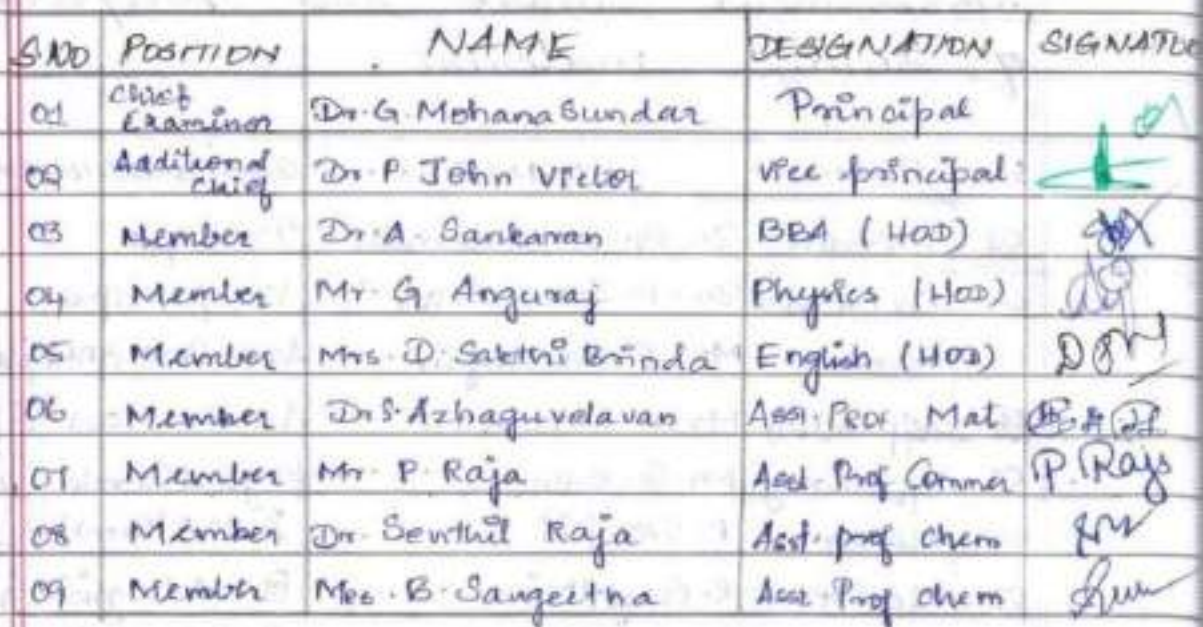 S.NO POSITION NAME DESIGNATION SIGNATU
01 Chief Examinor Dr. G. Mohana Sundar Principal
02 Additional Chief Dr. P John Victor vice principal
03 Member Dr. A. Sankaran BBA (HOD)
04 Member Mr. G. Anguraj Physics (HOD)
05 Member Mrs. D. Sakthi Brinda English (HOD)
06 Member Dr S. Azhaguvelavan Asst. Prof Mat
07 Member Mr. P. Raja Asst. Prof Commer P. Raja
08 Member Dr. Senthil Raja Asst. prof chem
09 Member Mrs. B. Sangeetha Asst Prof chem